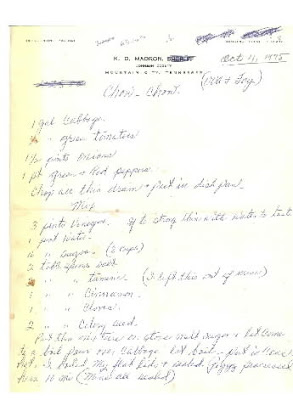 K. D. MADRON,
JOHNSON COUNTY
MOUNTAIN CITY, TENNESSEE
Oct. 11, 1975
Chow - Chow.
1 gal Cabbage
" green tomatoes
1 1/2 pints onions
1 pt green + Red peppers.
Chop all this drain + put in dish pan.
Mix
3 pints Vinegar. if to strong thin with water to taste
1 pint water
" sugar. (2 cups)
2 table spoons salt
" " " (I left this out of mine)
" " Cinnamon
1 " Cloves
2 " Celery seed.
Put this on stove until sugar + let come
to a boil pour over Cabbage let boil. put in cans
hot. I boiled my flat lids + sealed
here 10 min (Mine all sealed)